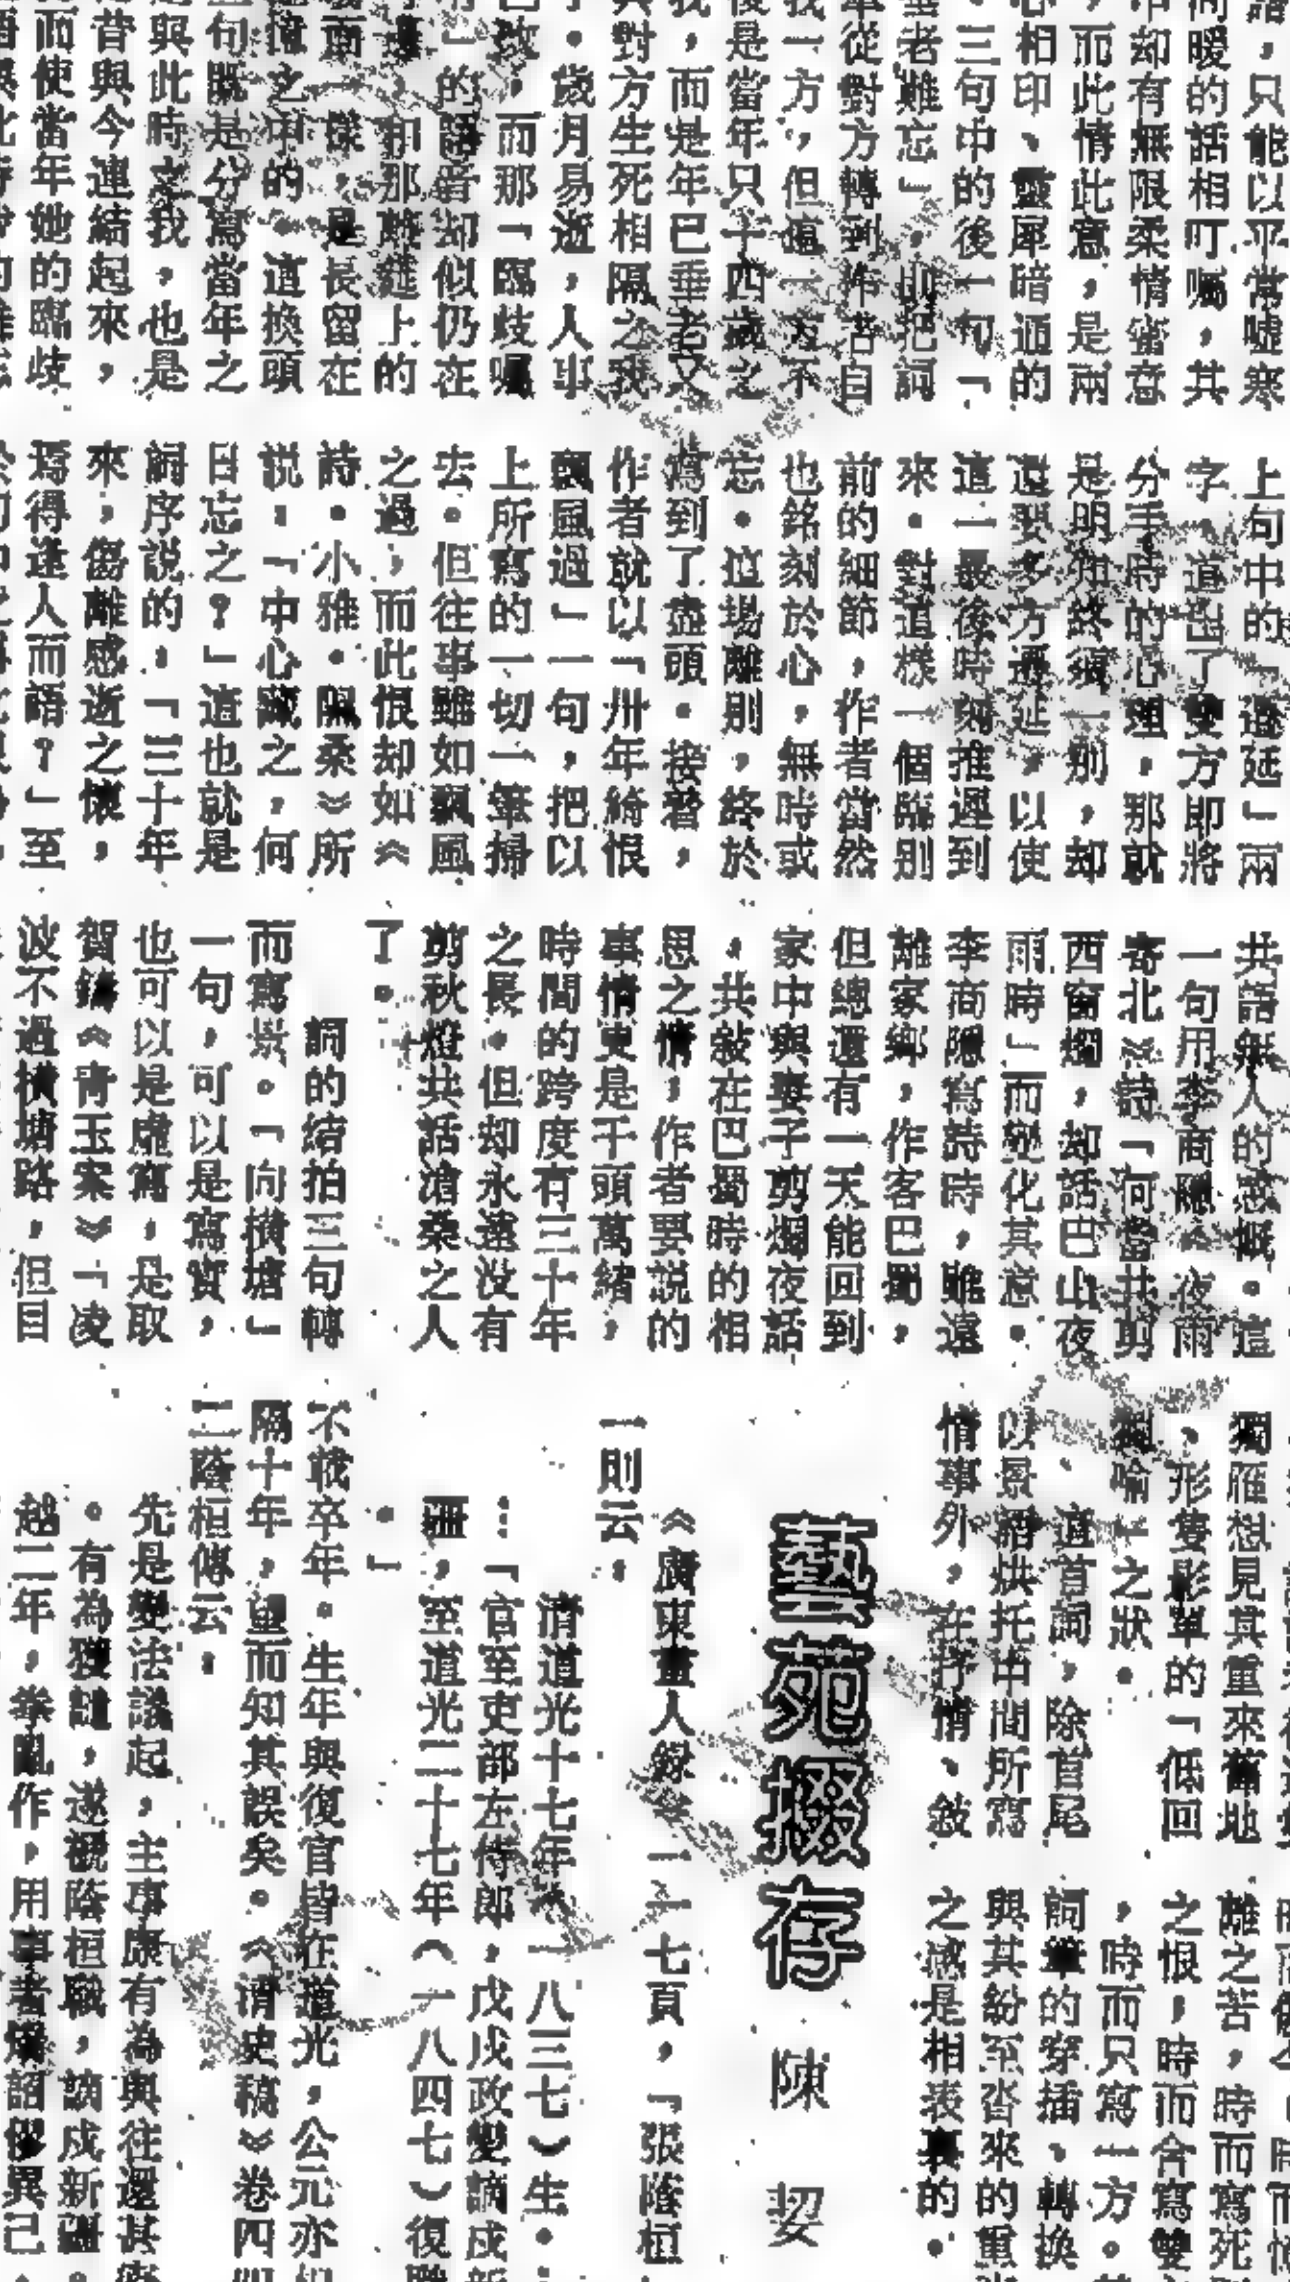 語，只能以平常噓寒
問暖的話相叮囑，其
中却有無限柔情蜜意
，而此情此意，是兩
心相印、靈犀暗通的
。三句中的後一句「
垂者難忘」，則把詞
筆從對方轉到作者自
我一方，但這一方不
復是當年只十四歲之
我，而是年已垂老又
與對方生死相隔之我
。歲月易逝，人事
已改，而那「臨歧囑
」的語音却似仍在
，和那離筵上的
面一樣，是長留在
憶之中的。這換頭
句既是分寫當年之
與此時之我，也是
昔與今連結起來，
而使當年她的臨歧
上句中的「遷延」兩
字，道出了雙方即將
分手時的心理，那就
是明知終須一別，却
還要多方遷延，以使
這一最後時刻推遲到
來。對這樣一個臨別
前的細節，作者當然
也銘刻於心，無時或
忘。這場離別，終於
寫到了盡頭。接着，
作者就以「卅年綺恨
飄風過」一句，把以
上所寫的一切一筆掃
去。但往事雖如飄風
之過，而此恨却如《
詩·小雅·隰桑》所
說：「中心藏之，何
日忘之？」這也就是
詞序說的，「三十年
來，傷離感逝之懷，
焉得逢人而語？」至
共語無人的感慨。這
一句用李商隱《夜雨
寄北》詩「何當共剪
西窗燭，却話巴山夜
雨時」而變化其意。
李商隱寫詩時，雖遠
離家鄉，作客巴蜀，
但總還有一天能回到
家中與妻子剪燭夜話
，共敍在巴蜀時的相
思之情，作者要說的
事情更是千頭萬緒，
時間的跨度有三十年
之長。但却永遠没有
剪秋燈共話滄桑之人
了。
詞的結拍三句轉
而寫景。「向橫塘」
一句，可以是寫實，
也可以是虛寫，是取
賀鑄《青玉案》「凌
波不過橫塘路，但目
獨雁想見其重來舊地
、形隻影單的「低回
獨喻」之狀。
、這首詞，除首尾
以景語烘托中間所寫
情事外，在抒情、敍
離之苦，時而寫死
之恨，時而合寫雙
，時而只寫一方。
詞筆的穿插、轉換
與其紛至沓來的重
之感是相表裏的。
藝苑掇存
陳 㛃
《廣東畫人錄》二一七頁，「張蔭桓
一則云，
清道光十七年（一八三七）生。
…「官至吏部左侍郎，戊戌政變謫戍新
疆，至道光二十七年（一八四七）復職
。」
不載卒年。生年與復官皆在道光，公元亦相
隔十年，望而知其誤矣。《清史稿》卷四
二蔭桓傳云，
先是變法議起，主事康有為與往還甚密
。有為獲譴，遂褫蔭桓職，謫戍新疆。
越二年，拳亂作，用事者矯詔僇異己，